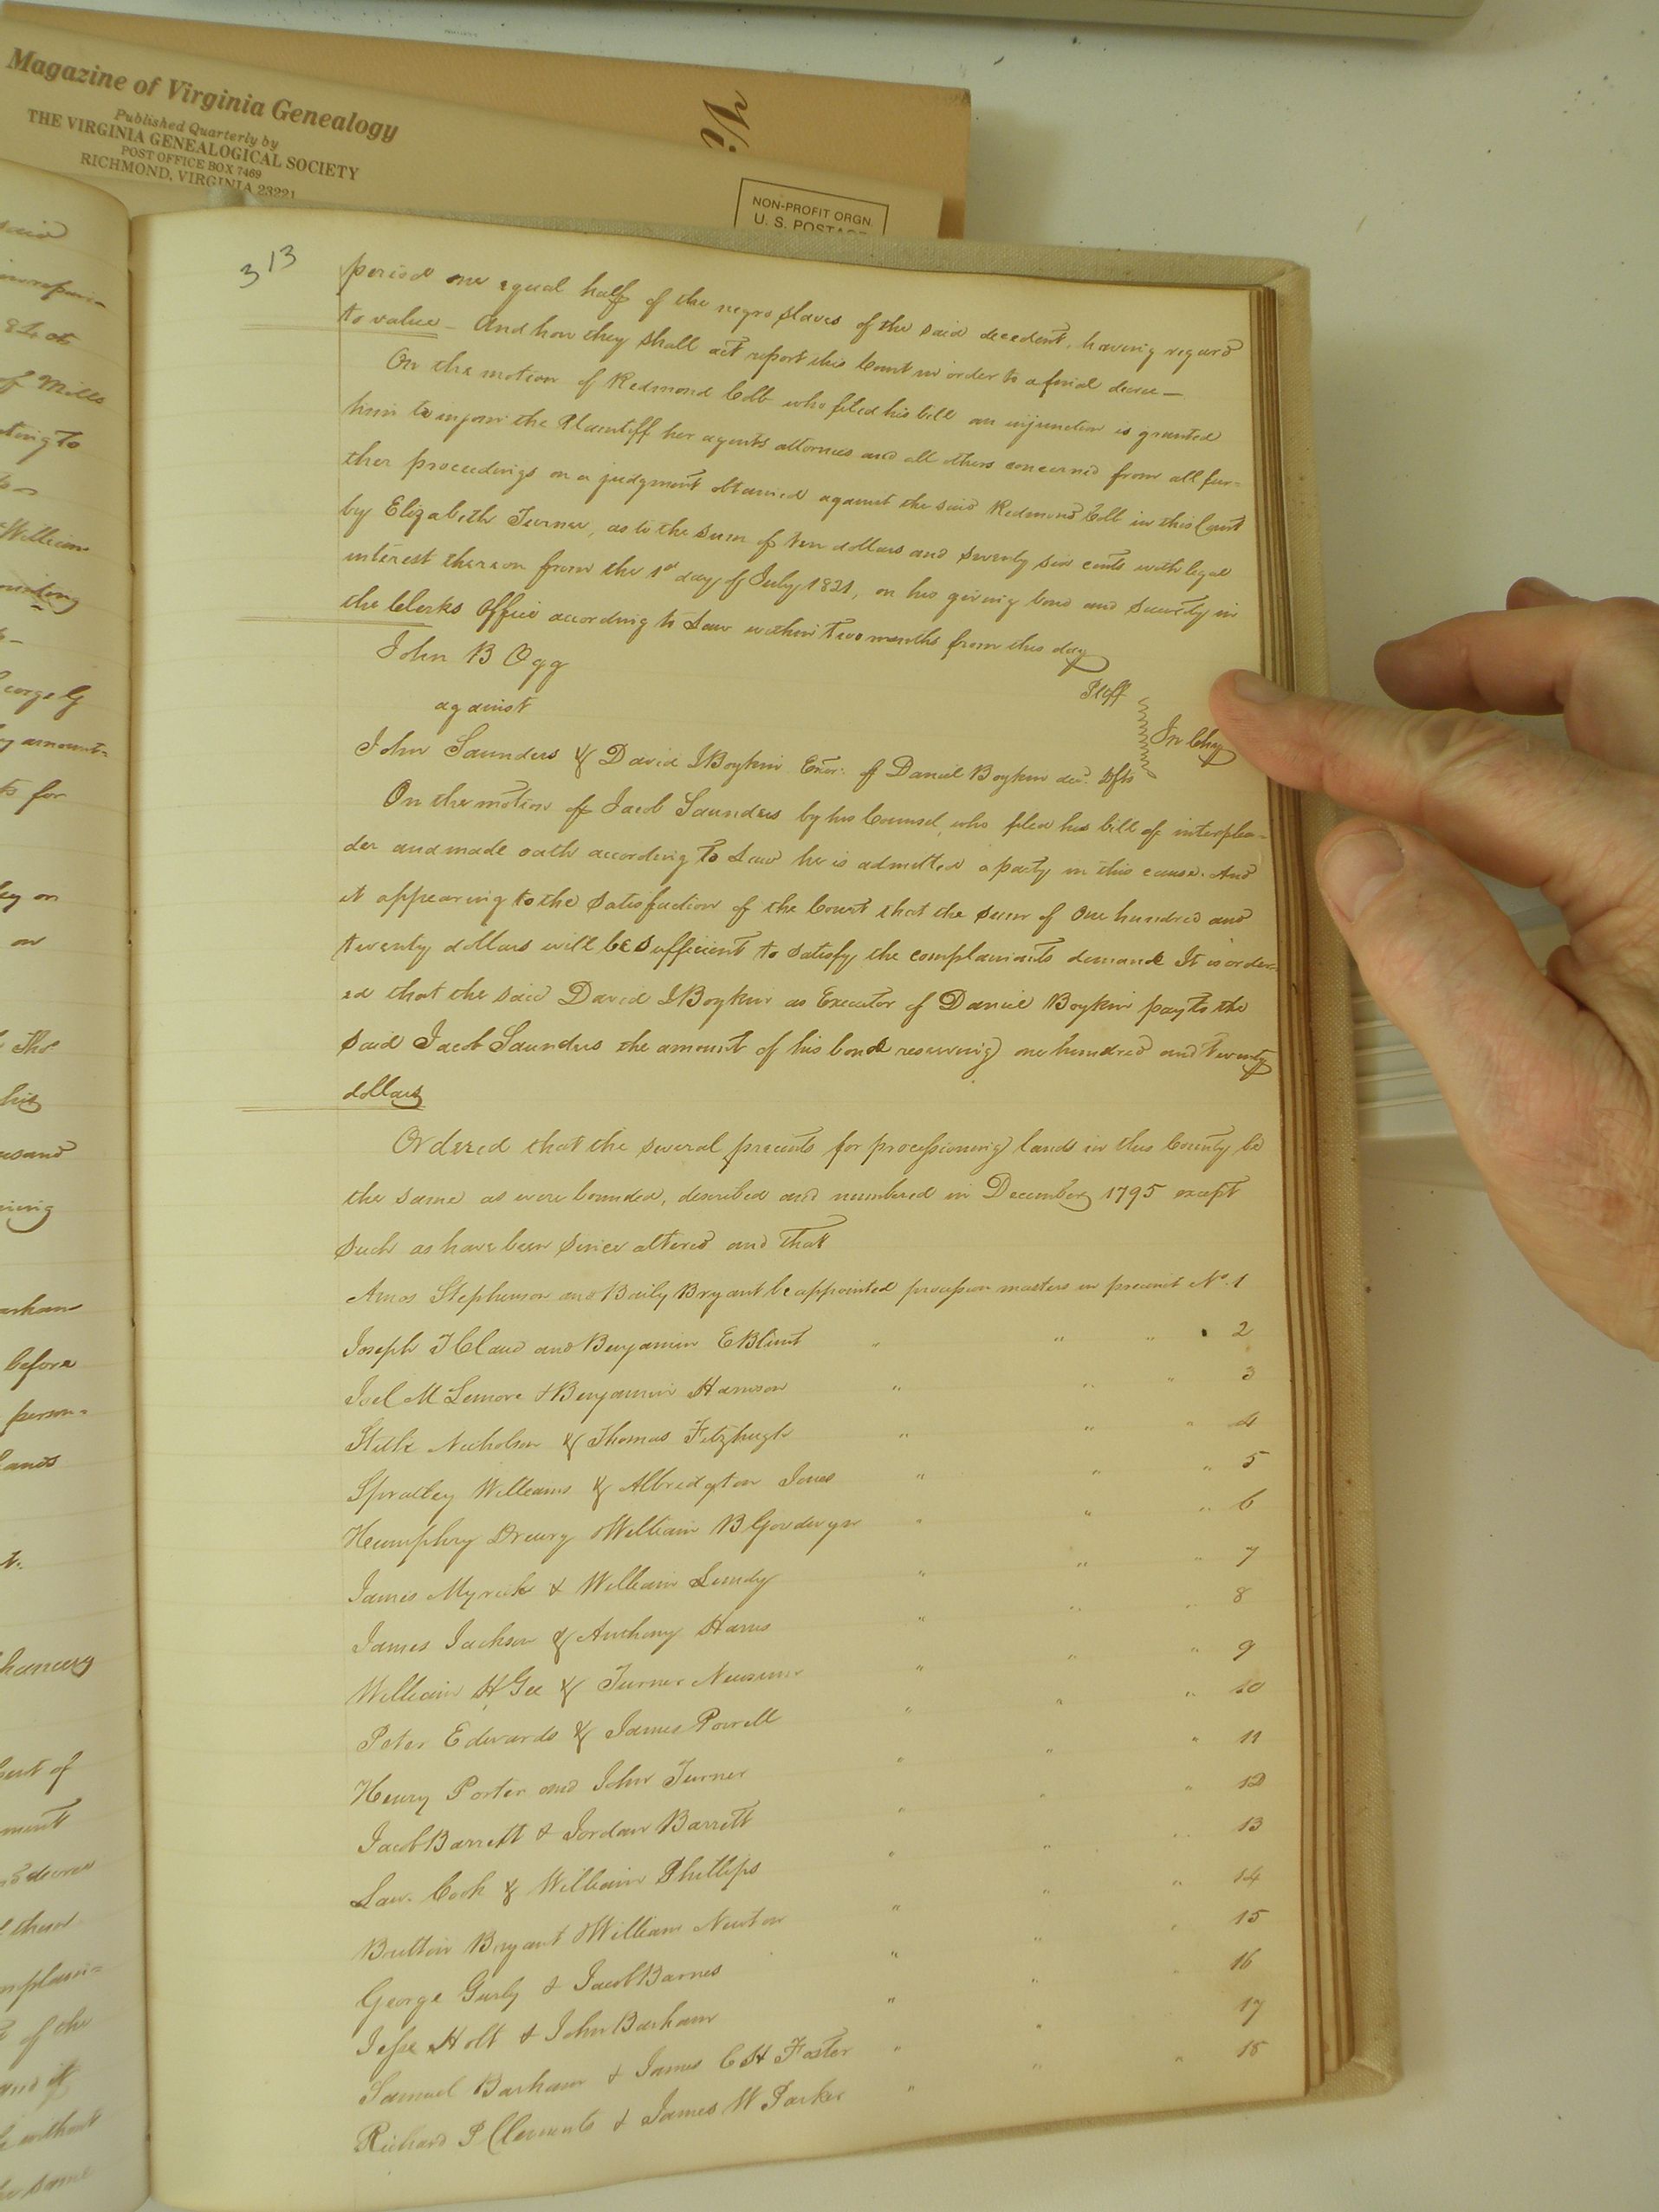 Magazine of Virginia Genealogy
Published Quarterly by
THE VIRGINIA GENEALOGICAL SOCIETY
POST OFFICE BOX 7469
RICHMOND, VIRGINIA 23221
NON-PROFIT ORGN.
U. S. POSTAGE
313
period one equal half of the negro slaves of the said decedent, having regard
to value – And how they shall act report this Court in order to a final decree –
On the motion of Redmond Cobb who filed his bill an injunction is granted
him to injoin the Plaintiff her agents attornies and all others concerned from all fur-
ther proceedings on a judgment obtained against the said Redmond Cobb in this Court
by Elizabeth Turner, as to the sum of ten dollars and seventy six cents with legal
interest thereon from the 1st day of July 1821, on his giving bond and security in
the Clerks Office according to Law within two months from this day
John B Ogg
Plff
against
In Chy
John Saunders & David J Boykin Exor. of Daniel Boykin dec. Dfts
On the motion of Jacob Saunders by his Counsel, who filed his bill of interplea-
der and made oath according to Law he is admitted a party in this cause. And
it appearing to the satisfaction of the Court that the sum of One hundred and
twenty dollars will be sufficient to satisfy the complainants demand It is order-
ed that the said David J Boykin as Executor of Daniel Boykin pay to the
said Jacob Saunders the amount of his bond reserving one hundred and twenty
dollars
Ordered that the several precincts for processioning lands in this County be
the same as were bounded, described and numbered in December 1795 except
such as have been since altered and that
Amos Stephenson and Baily Bryant be appointed procession masters in precinct No. 1
Joseph T Claud and Benjamin E Blunt " " " 2
Joel M Lemore & Benjamin Harrison " " " 3
Nicholson & Thomas Fitzhugh " " " 4
Spratley Williams & Albridgton Jones " " " 5
Humphry Drewry & William B Goodwyn " " " 6
James Myrick & William Lundy " " " 7
James Jackson & Anthony Harris " " " 8
William H Gee & Turner Newsum " " " 9
Peter Edwards & James Powell " " " 10
Henry Porter and John Turner " " " 11
Jacob Barrett & Jordan Barrett " " " 12
Law. Cook & William Phillips " " " 13
Britton Bryant & William Newton " " " 14
George Gurly & Jacob Barnes " " " 15
Jesse Holt & John Barham " " " 16
Samuel Barham & James C H Foster " " " 17
Richard P Clements & James W Parker " " " 18